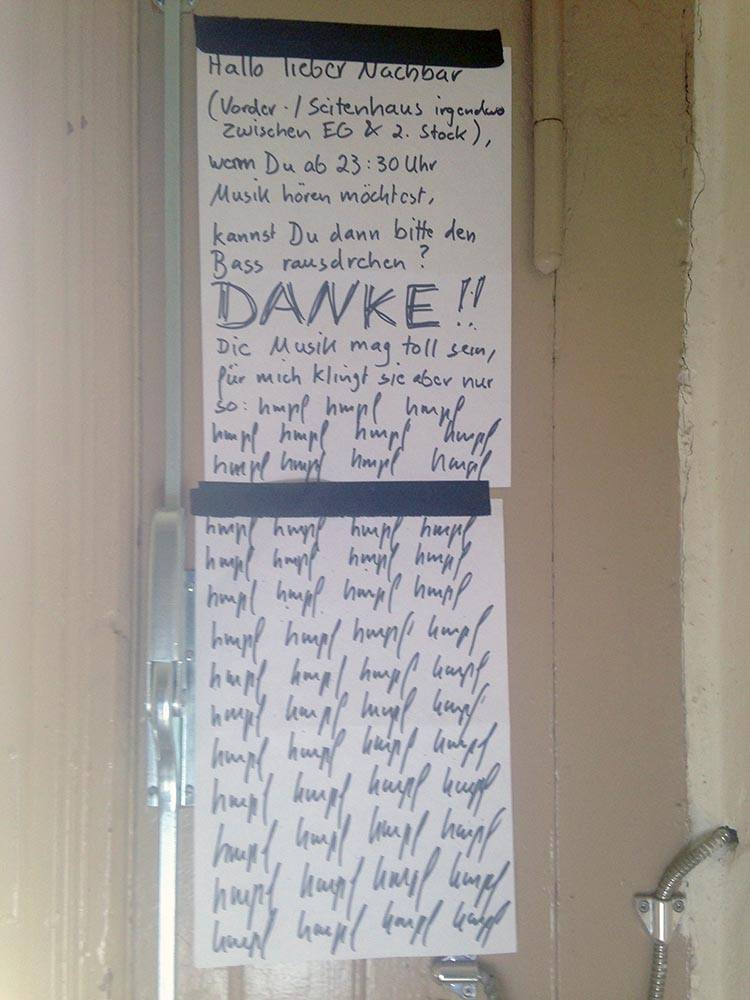 Hallo lieber Nachbar
(Vorder-/Seitenhaus irgendwo
zwischen EG & 2. Stock),
wenn Du ab 23:30 Uhr
Musik hören möchtest,
kannst Du dann bitte den
Bass rausdrehen?
DANKE!!
Die Musik mag toll sein,
für mich klingt sie aber nur
so: hmpf hmpf hmpf
hmpf hmpf hmpf hmpf
hmpf hmpf hmpf hmpf
hmpf hmpf hmpf hmpf
hmpf hmpf hmpf hmpf
hmpf hmpf hmpf hmpf
hmpf hmpf hmpf hmpf
hmpf hmpf hmpf hmpf
hmpf hmpf hmpf hmpf
hmpf hmpf hmpf hmpf
hmpf hmpf hmpf hmpf
hmpf hmpf hmpf hmpf
hmpf hmpf hmpf hmpf
hmpf hmpf hmpf hmpf